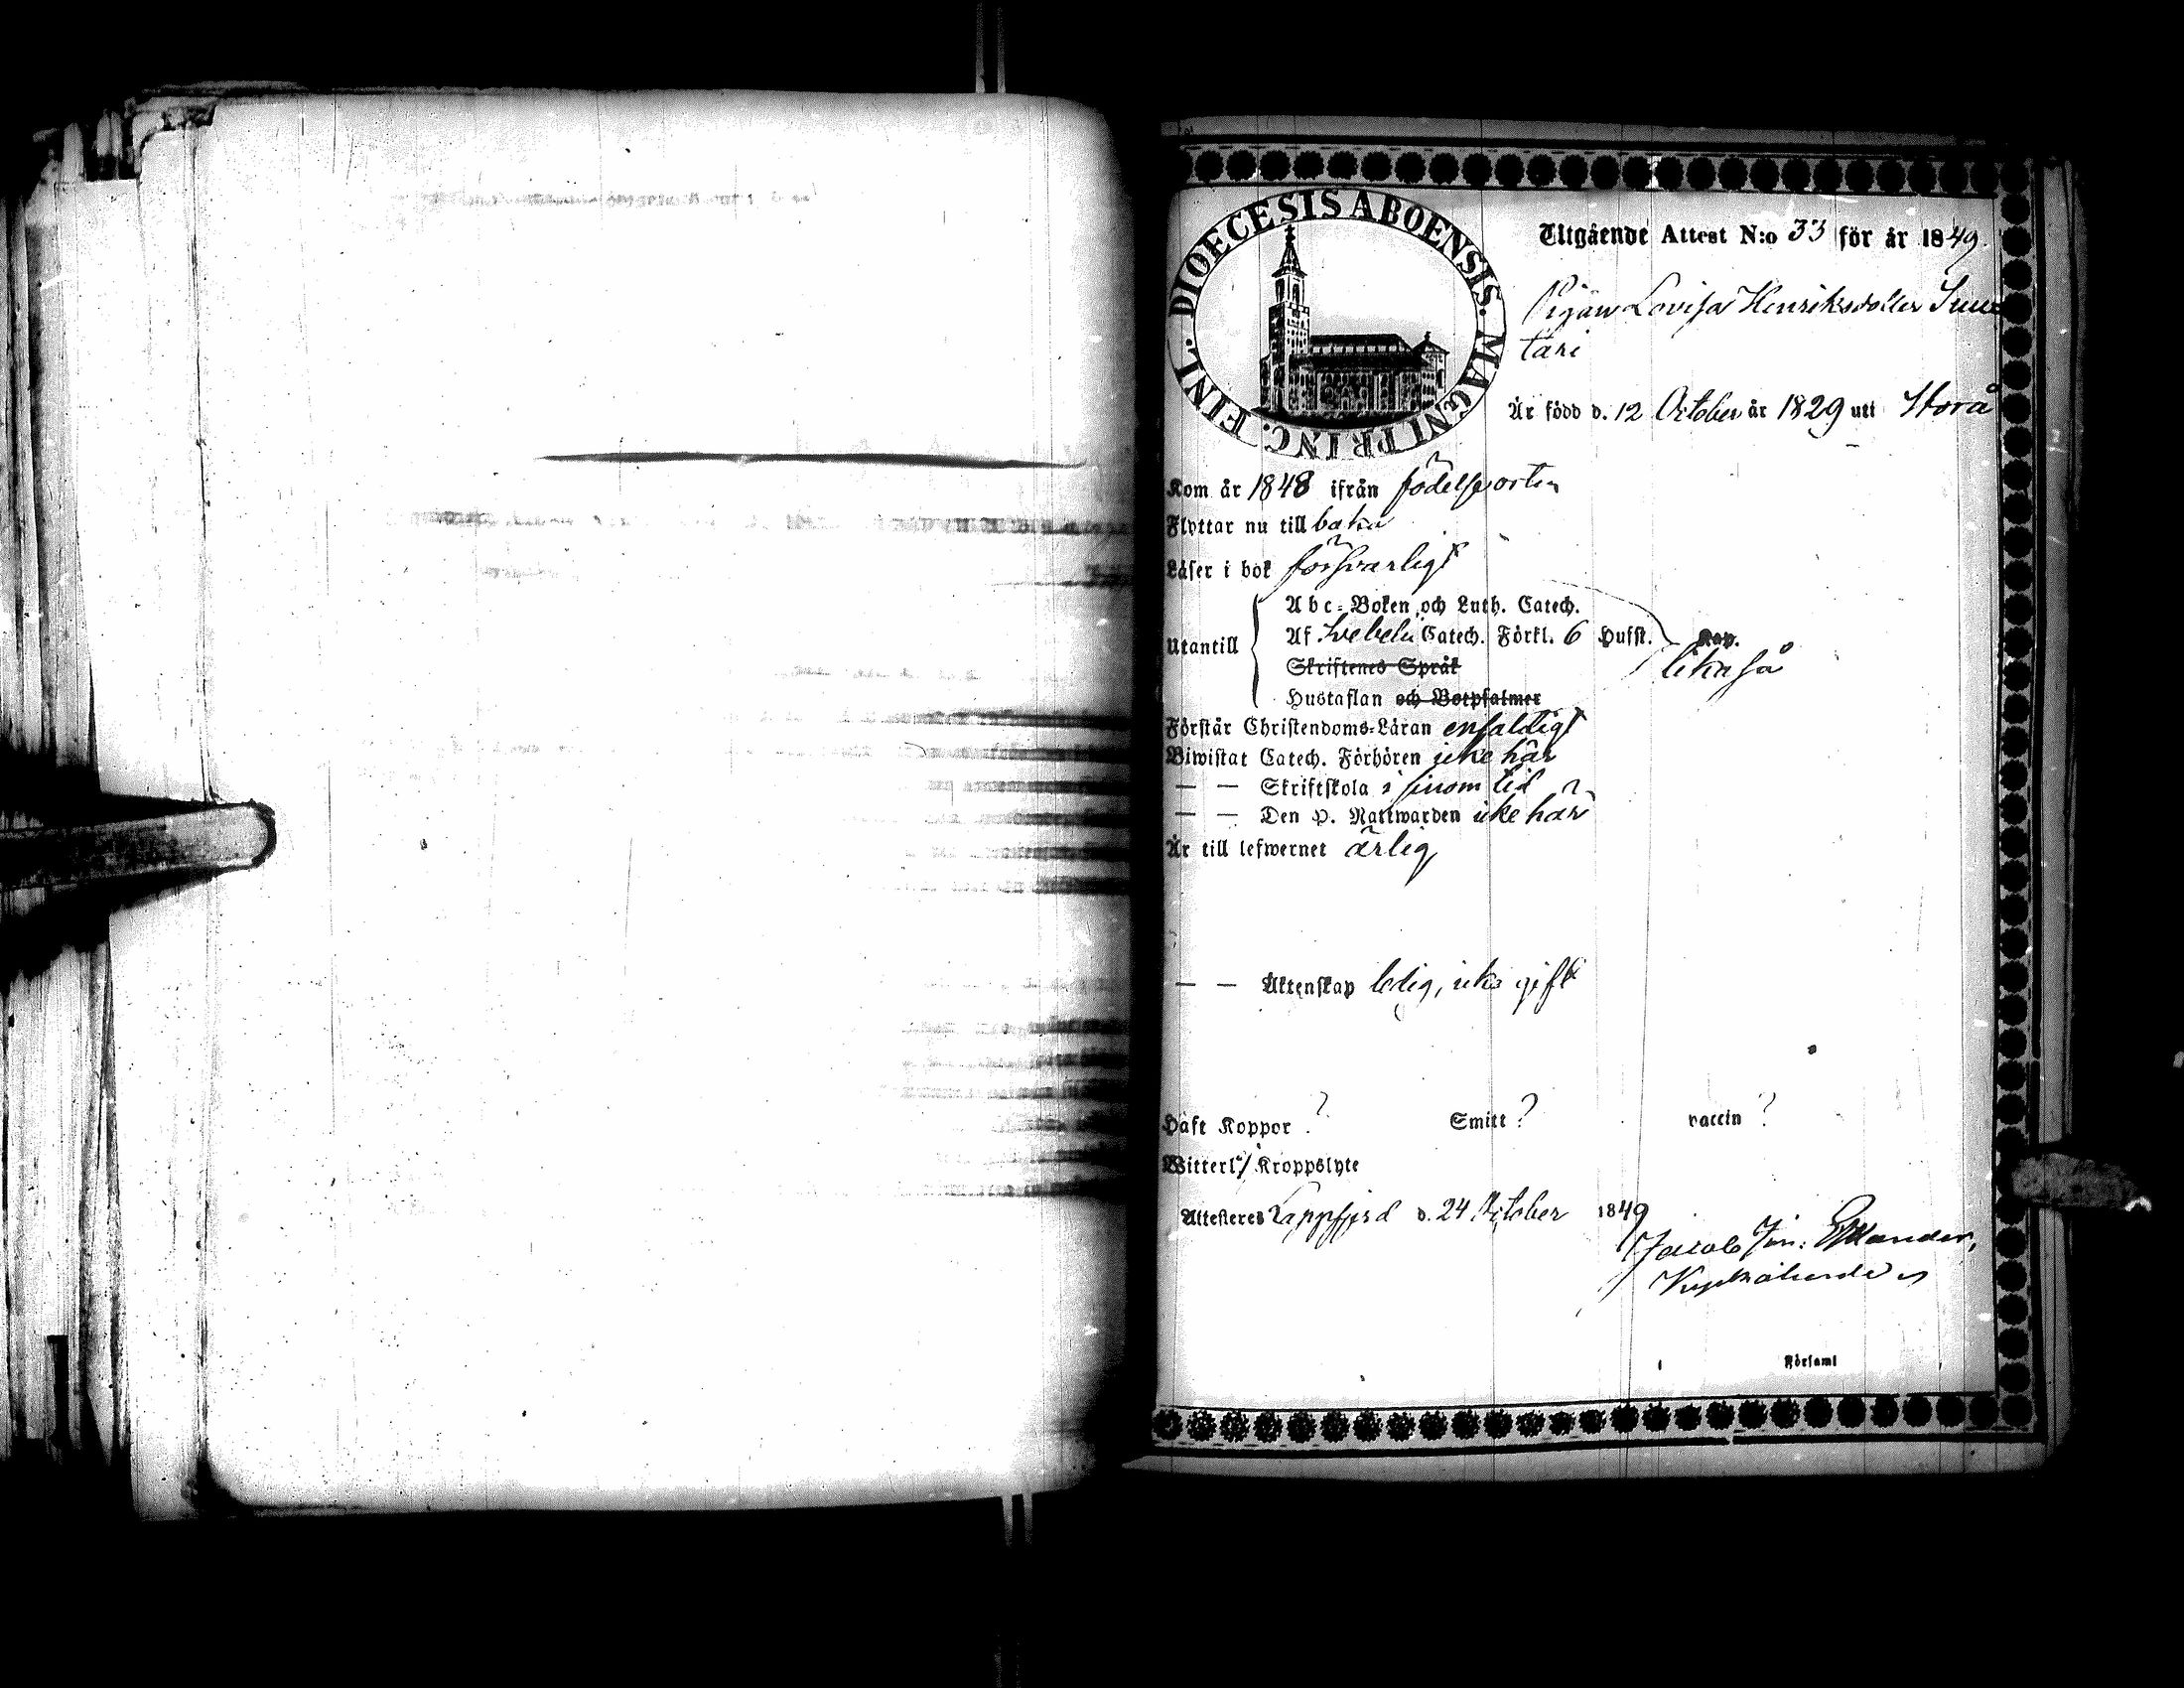 DIOECESIS ABOENSIS. MAGNI PRINC. FINL.
Utgående Attest N:o 33 för år 1849.
Pigan Lovisa Henriksdotter
tari
Är född d. 12 October år 1829 uti Storå
Kom år 1848 ifrån födelseorten
Flyttar nu till baka
Läser i bok försvarligt
Utantill
Abc-Boken och Luth. Catech.
Af Svebelii Catech. Förkl. 6 Hufst. Kap.
likaså
Skriftenes Språk
Hustaflan och Botpsalmer
Förstår Christendoms-Läran enfaldigt
Biwistat Catech. Förhören icke här
— — Skriftskola i sinom tid
— — Den H. Nattwarden icke här
Är till lefwernet ärlig
— — Äktenskap ledig, icke gift
Haft Koppor ? Smitt ? vaccin ?
Witterl./Kroppslyte
Attesteres Lappfjerd d. 24 October 1849
Jacob Joh:
Kyrkoherde
Församl